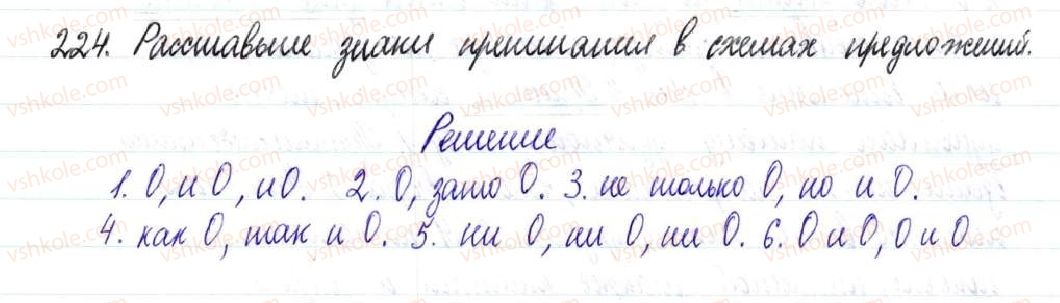 224. Расставьте знаки препинания в схемах предложений.
Решение
1. О, и О, и О. 2. О, зато О. 3. не только О, но и О.
4. как О, так и О. 5. ни О, ни О, ни О. 6. О и О, О и О